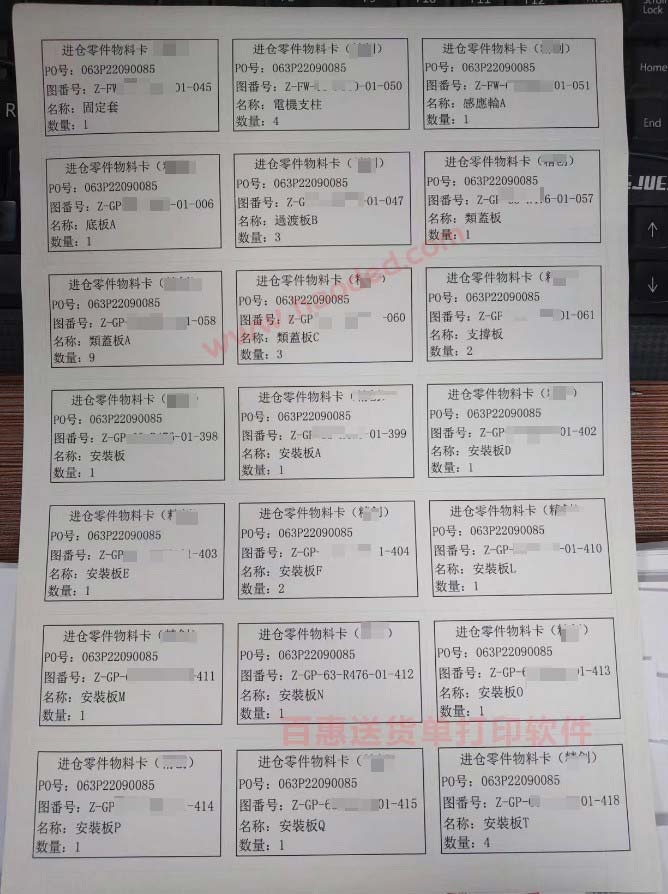 进仓零件物料卡
PO号: 063P22090085
图番号: Z-FW 01-045
名称: 固定套
数量: 1
进仓零件物料卡(精创)
PO号: 063P22090085
图番号: Z-FW- -01-050
名称: 電機支柱
数量: 4
进仓零件物料卡(精创)
PO号: 063P22090085
图番号: Z-FW- -01-051
名称: 感應輪A
数量: 1
进仓零件物料卡(精
PO号: 063P22090085
图番号: Z-GP -01-006
名称: 底板A
数量: 1
进仓零件物料卡( 创)
PO号: 063P22090085
图番号: Z-G 01-047
名称: 過渡板B
数量: 3
进仓零件物料卡(精创)
PO号: 063P22090085
图番号: Z-GP 6-01-057
名称: 類蓋板
数量: 1
进仓零件物料卡(精创)
PO号: 063P22090085
图番号: Z-GP- 1-058
名称: 類蓋板A
数量: 9
进仓零件物料卡(精
PO号: 063P22090085
图番号: Z-GP -060
名称: 類蓋板C
数量: 3
进仓零件物料卡(精
PO号: 063P22090085
图番号: Z-GP 01-061
名称: 支撐板
数量: 2
进仓零件物料卡( )
PO号: 063P22090085
图番号: Z-GP 01-398
名称: 安裝板
数量: 1
进仓零件物料卡(精创)
PO号: 063P22090085
图番号: Z-GP 01-399
名称: 安裝板A
数量: 1
进仓零件物料卡( )
PO号: 063P22090085
图番号: Z-GP 01-402
名称: 安裝板D
数量: 1
进仓零件物料卡(精
PO号: 063P22090085
图番号: Z-GP -403
名称: 安裝板E
数量: 1
进仓零件物料卡(精创)
PO号: 063P22090085
图番号: Z-GP- 1-404
名称: 安裝板F
数量: 2
进仓零件物料卡(精 )
PO号: 063P22090085
图番号: Z-GP- -01-410
名称: 安裝板L
数量: 1
进仓零件物料卡(精创)
PO号: 063P22090085
图番号: Z-GP-6 -411
名称: 安裝板M
数量: 1
进仓零件物料卡( )
PO号: 063P22090085
图番号: Z-GP-63-R476-01-412
名称: 安裝板N
数量: 1
进仓零件物料卡(精创)
PO号: 063P22090085
图番号: Z-GP-6 01-413
名称: 安裝板O
数量: 1
进仓零件物料卡( )
PO号: 063P22090085
图番号: Z-GP -414
名称: 安裝板P
数量: 1
进仓零件物料卡( )
PO号: 063P22090085
图番号: Z-GP-6 01-415
名称: 安裝板Q
数量: 1
进仓零件物料卡(精创)
PO号: 063P22090085
图番号: Z-GP-6 01-418
名称: 安裝板T
数量: 4
百惠送货单打印软件
Scroll
Lock
Home